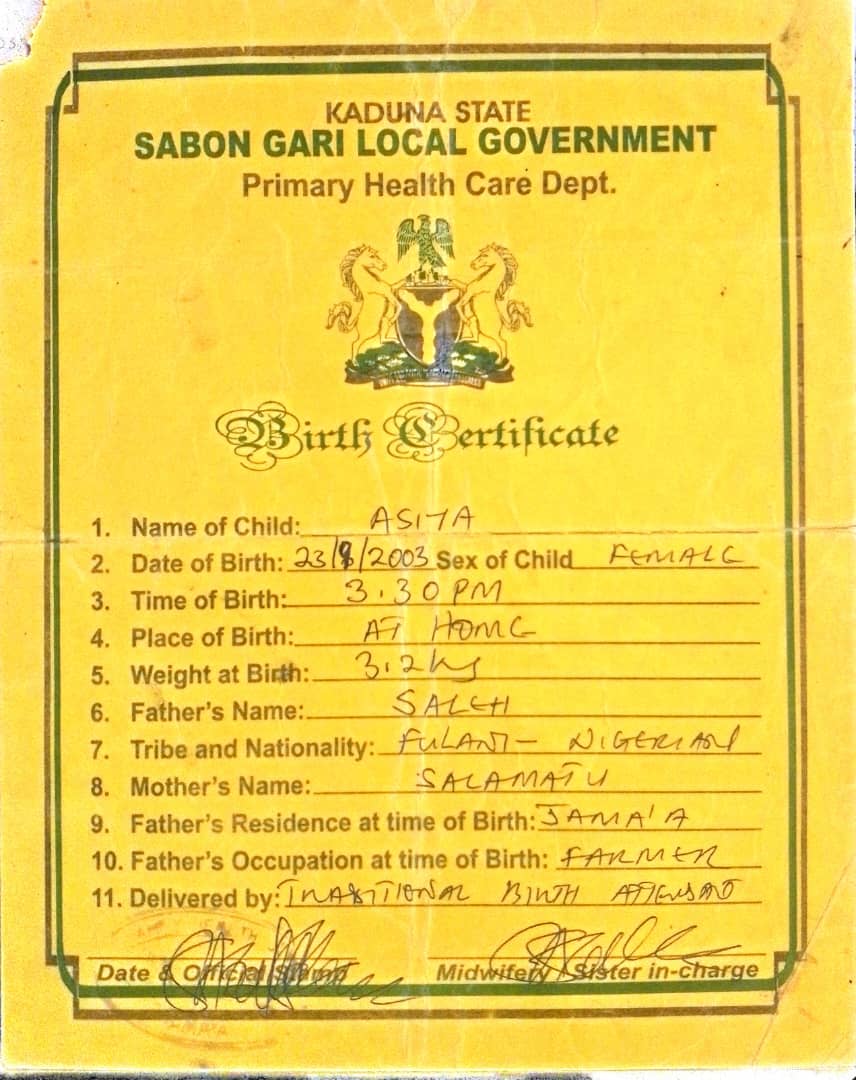 KADUNA STATE
SABON GARI LOCAL GOVERNMENT
Primary Health Care Dept.
Birth Certificate
1. Name of Child: ASIYA
2. Date of Birth: 23/8/2003 Sex of Child FEMALE
3. Time of Birth: 3.30PM
4. Place of Birth: AT HOME
5. Weight at Birth: 3.2kg
6. Father's Name: SALEH
7. Tribe and Nationality: FULANI - NIGERIAN
8. Mother's Name: SALAMATU
9. Father's Residence at time of Birth: JAMA'A
10. Father's Occupation at time of Birth: FARMER
11. Delivered by: TRADITIONAL BIRTH ATTENDANT
Date & Official Stamp Midwifery / Sister in-charge